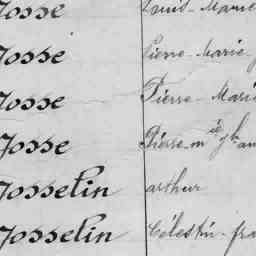 Josse Louis-Marie
Josse Pierre-Marie-
Josse Pierre-Mari
Josse Pierre-m ie
Josselin arthur
Josselin Célestin-fra